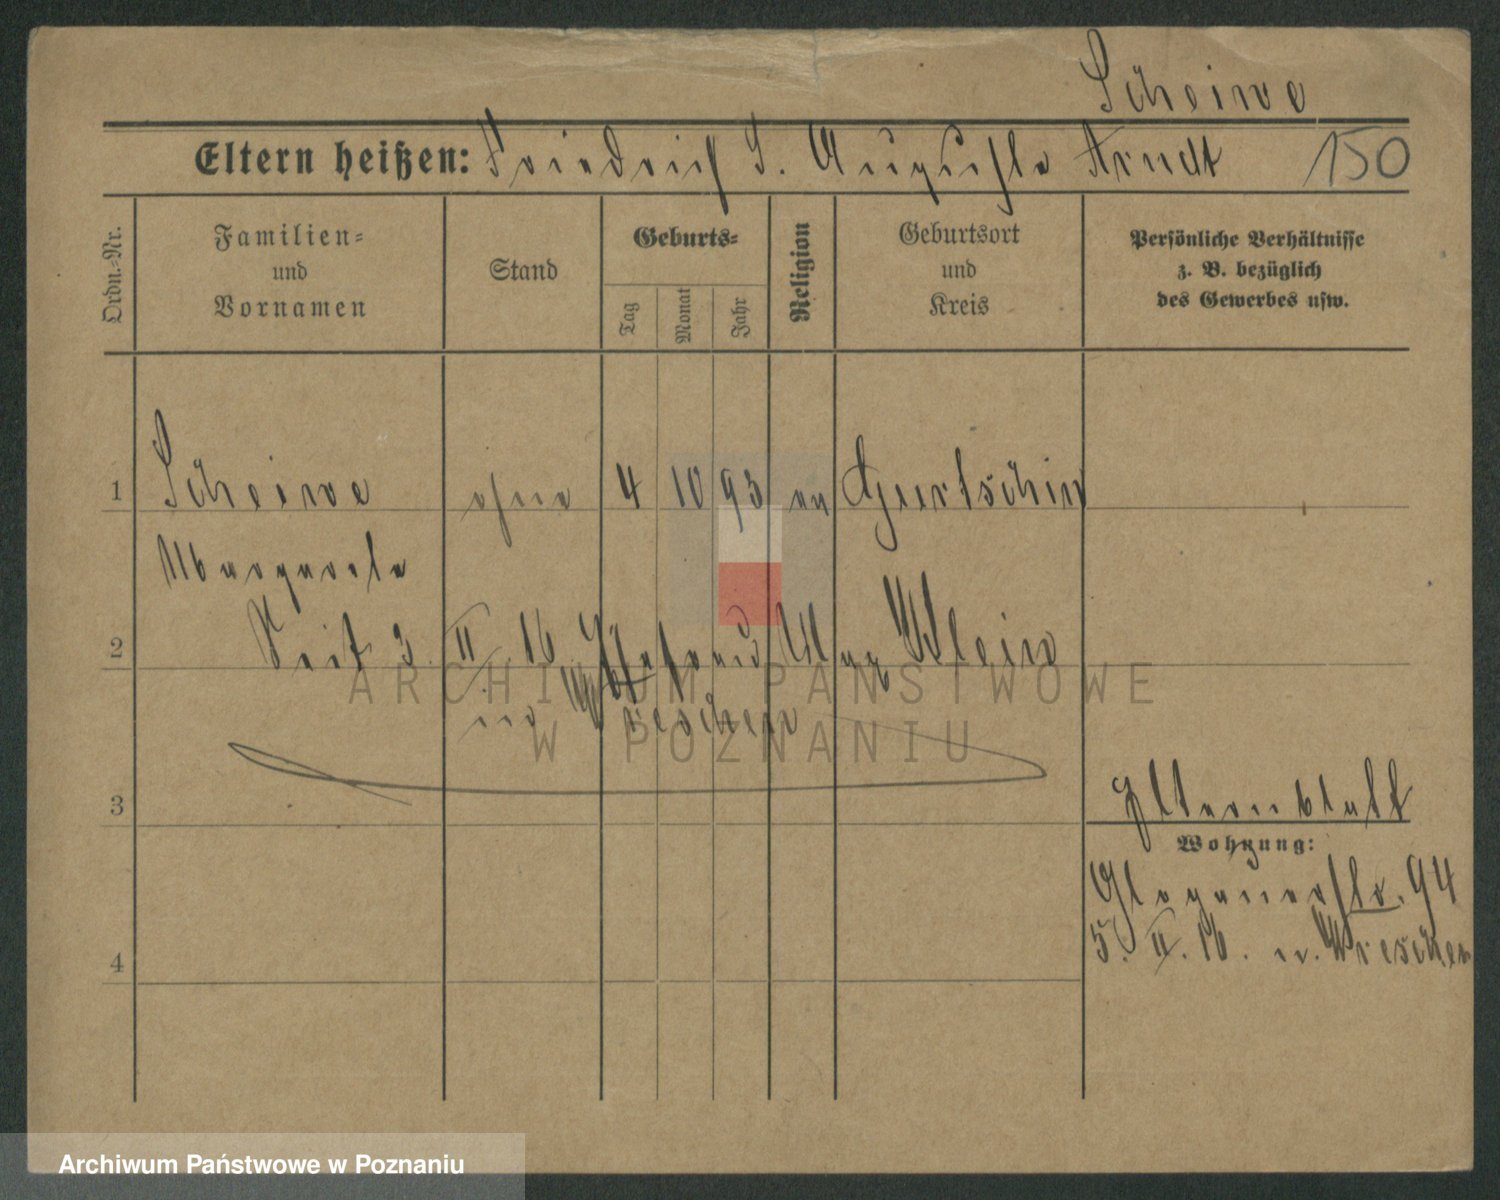 Scheiwe
Eltern heißen: Friedrich S. Auguste Arndt 150
Ordn.-Nr.
Familien- und Vornamen
Stand
Geburts-
Tag
Monat
Jahr
Religion
Geburtsort und Kreis
Persönliche Verhältnisse
z. B. bezüglich
des Gewerbes usw.
1 Scheiwe ohne 4 10 93 ev Gurtschin
Margarete
2 Seit 3. II 16 Klein
in Wreschen
3
Elternblatt
Wohnung:
Glogauerstr. 94
5. II. 16. n. Wreschen
4
ARCHIWUM PAŃSTWOWE
W POZNANIU
Archiwum Państwowe w Poznaniu